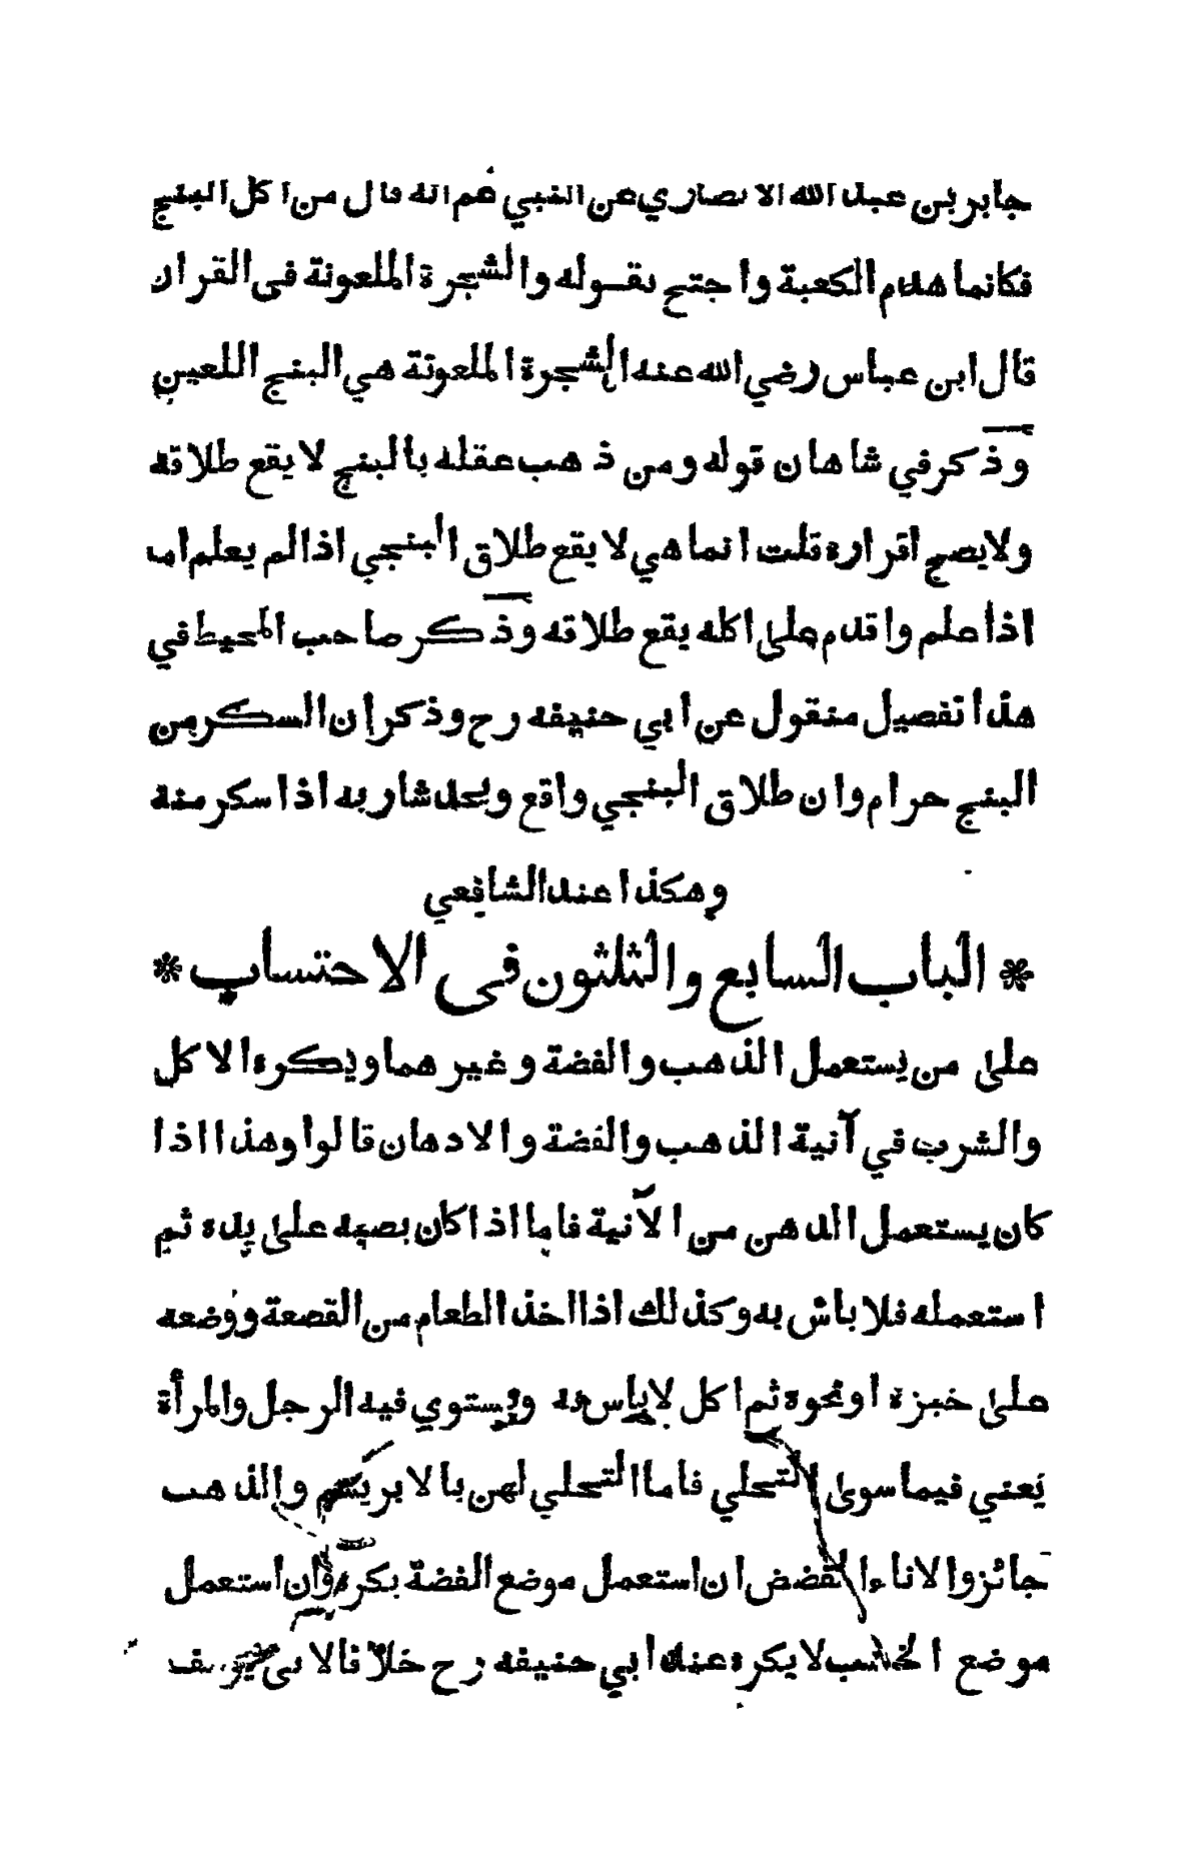 جابر بن عبد الله الانصاري عن النبي عم انه قال من اكل البنج
فكانما هدم الكعبة واحتج بقوله والشجرة الملعونة فى القران
قال ابن عباس رضي الله عنه الشجرة الملعونة هي البنج اللعين
وذكر في شاهان قوله ومن ذهب عقله بالبنج لا يقع طلاقه
ولا يصح اقراره قلت انما هي لا يقع طلاق البنجي اذا لم يعلم اما
اذا علم واقدم على اكله يقع طلاقه وذكر صاحب المحيط في
هذا تفصيل منقول عن ابي حنيفه رح وذكر ان السكر من
البنج حرام وان طلاق البنجي واقع ويحد شاربه اذا سكر منه
وهكذا عند الشافعي
* الباب السابع والثلثون فى الاحتساب *
على من يستعمل الذهب والفضة وغيرهما ويكره الاكل
والشرب في آنية الذهب والفضة والادهان قالوا وهذا اذا
كان يستعمل الدهن من الآنية فاما اذا كان بصبه على يده ثم
استعمله فلا باش به وكذلك اذا اخذ الطعام من القصعة ووضعه
على خبزة او نحوه ثم اكل لا باس به ويستوي فيه الرجل والمرأة
يعني فيما سوى التحلي فاما التحلي لهن بالابريشم والذهب
جائز والاناء المفضض ان استعمل موضع الفضة بكره وان استعمل
موضع الخشب لا يكره عند ابي حنيفه رح خلافا لابى يوسف